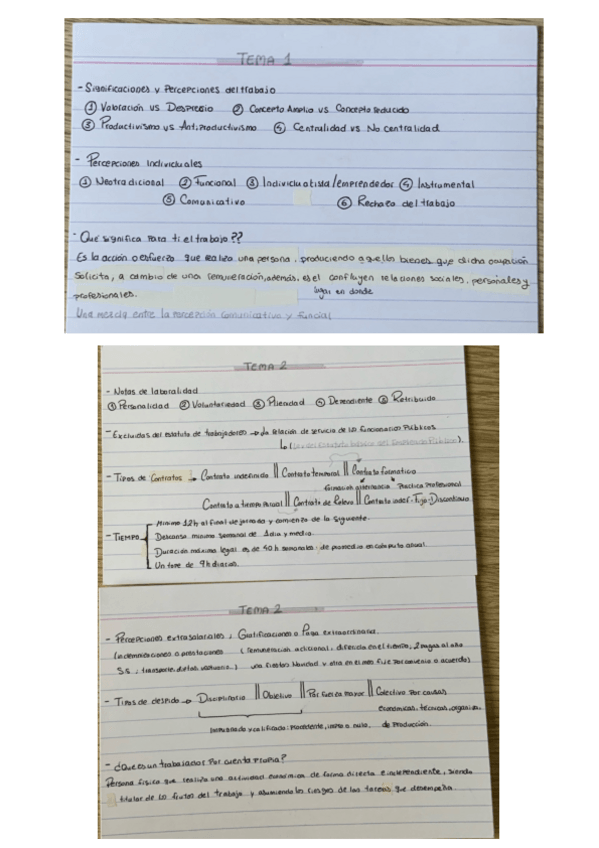 TEMA 1
- Significaciones y Percepciones del trabajo
① Valoración vs Desprecio ② Concepto Amplio vs Concepto reducido
③ Productivismo vs Antiproductivismo ④ Centralidad vs No centralidad
- Percepciones Individuales
① Neotradicional ② Funcional ③ Individualista/emprendedor ④ Instrumental
⑤ Comunicativo ⑥ Rechazo del trabajo
- Qué significa para ti el trabajo??
Es la acción o esfuerzo que realiza una persona, produciendo aquellos bienes que dicha ocupación
solicita, a cambio de una remuneración, además, es el confluyen relaciones sociales, personales y
lugar en donde
profesionales.
Una mezcla entre la percepción comunicativa y funcial
TEMA 2
- Notas de laboralidad
① Personalidad ② Voluntariedad ③ Ajenidad ④ Dependiente ⑤ Retribuida
- Excluidas del estatuto de trabajadores → la relación de servicio de los funcionarios públicos.
- Tipos de Contratos → Contrato indefinido || Contrato temporal || Contrato formativo
Formación alternancia Práctica Profesional
Contrato a tiempo parcial || Contrato de Relevo || Contrato indef-Fijo-Discontinuo
- TIEMPO
Mínimo 12h al final de jornada y comienzo de la siguiente.
Descanso mínimo semanal de 1 día y medio.
Duración máxima legal es de 40h semanales de promedio en cómputo anual.
Un tope de 9h diarias.
TEMA 2
- Percepciones extrasalariales ; Gratificaciones o Paga extraordinaria.
(indemnizaciones o prestaciones (remuneración adicional, diferida en el tiempo, 2 pagas al año
S.S ; transporte, dietas, vestuario) una fiestas Navidad y otra en el mes fije por convenio o acuerdo)
- Tipos de despido → Disciplinario || Objetivo || Por fuerza mayor || Colectivo por causas
económicas, técnicas, organiza.
Impugnado y calificado: procedente, impro o nulo. de producción.
- ¿Que es un trabajador por cuenta propia?
Persona física que realiza una actividad económica de forma directa e independiente, siendo
titular de los frutos del trabajo y asumiendo los riesgos de las tareas que desempeña.